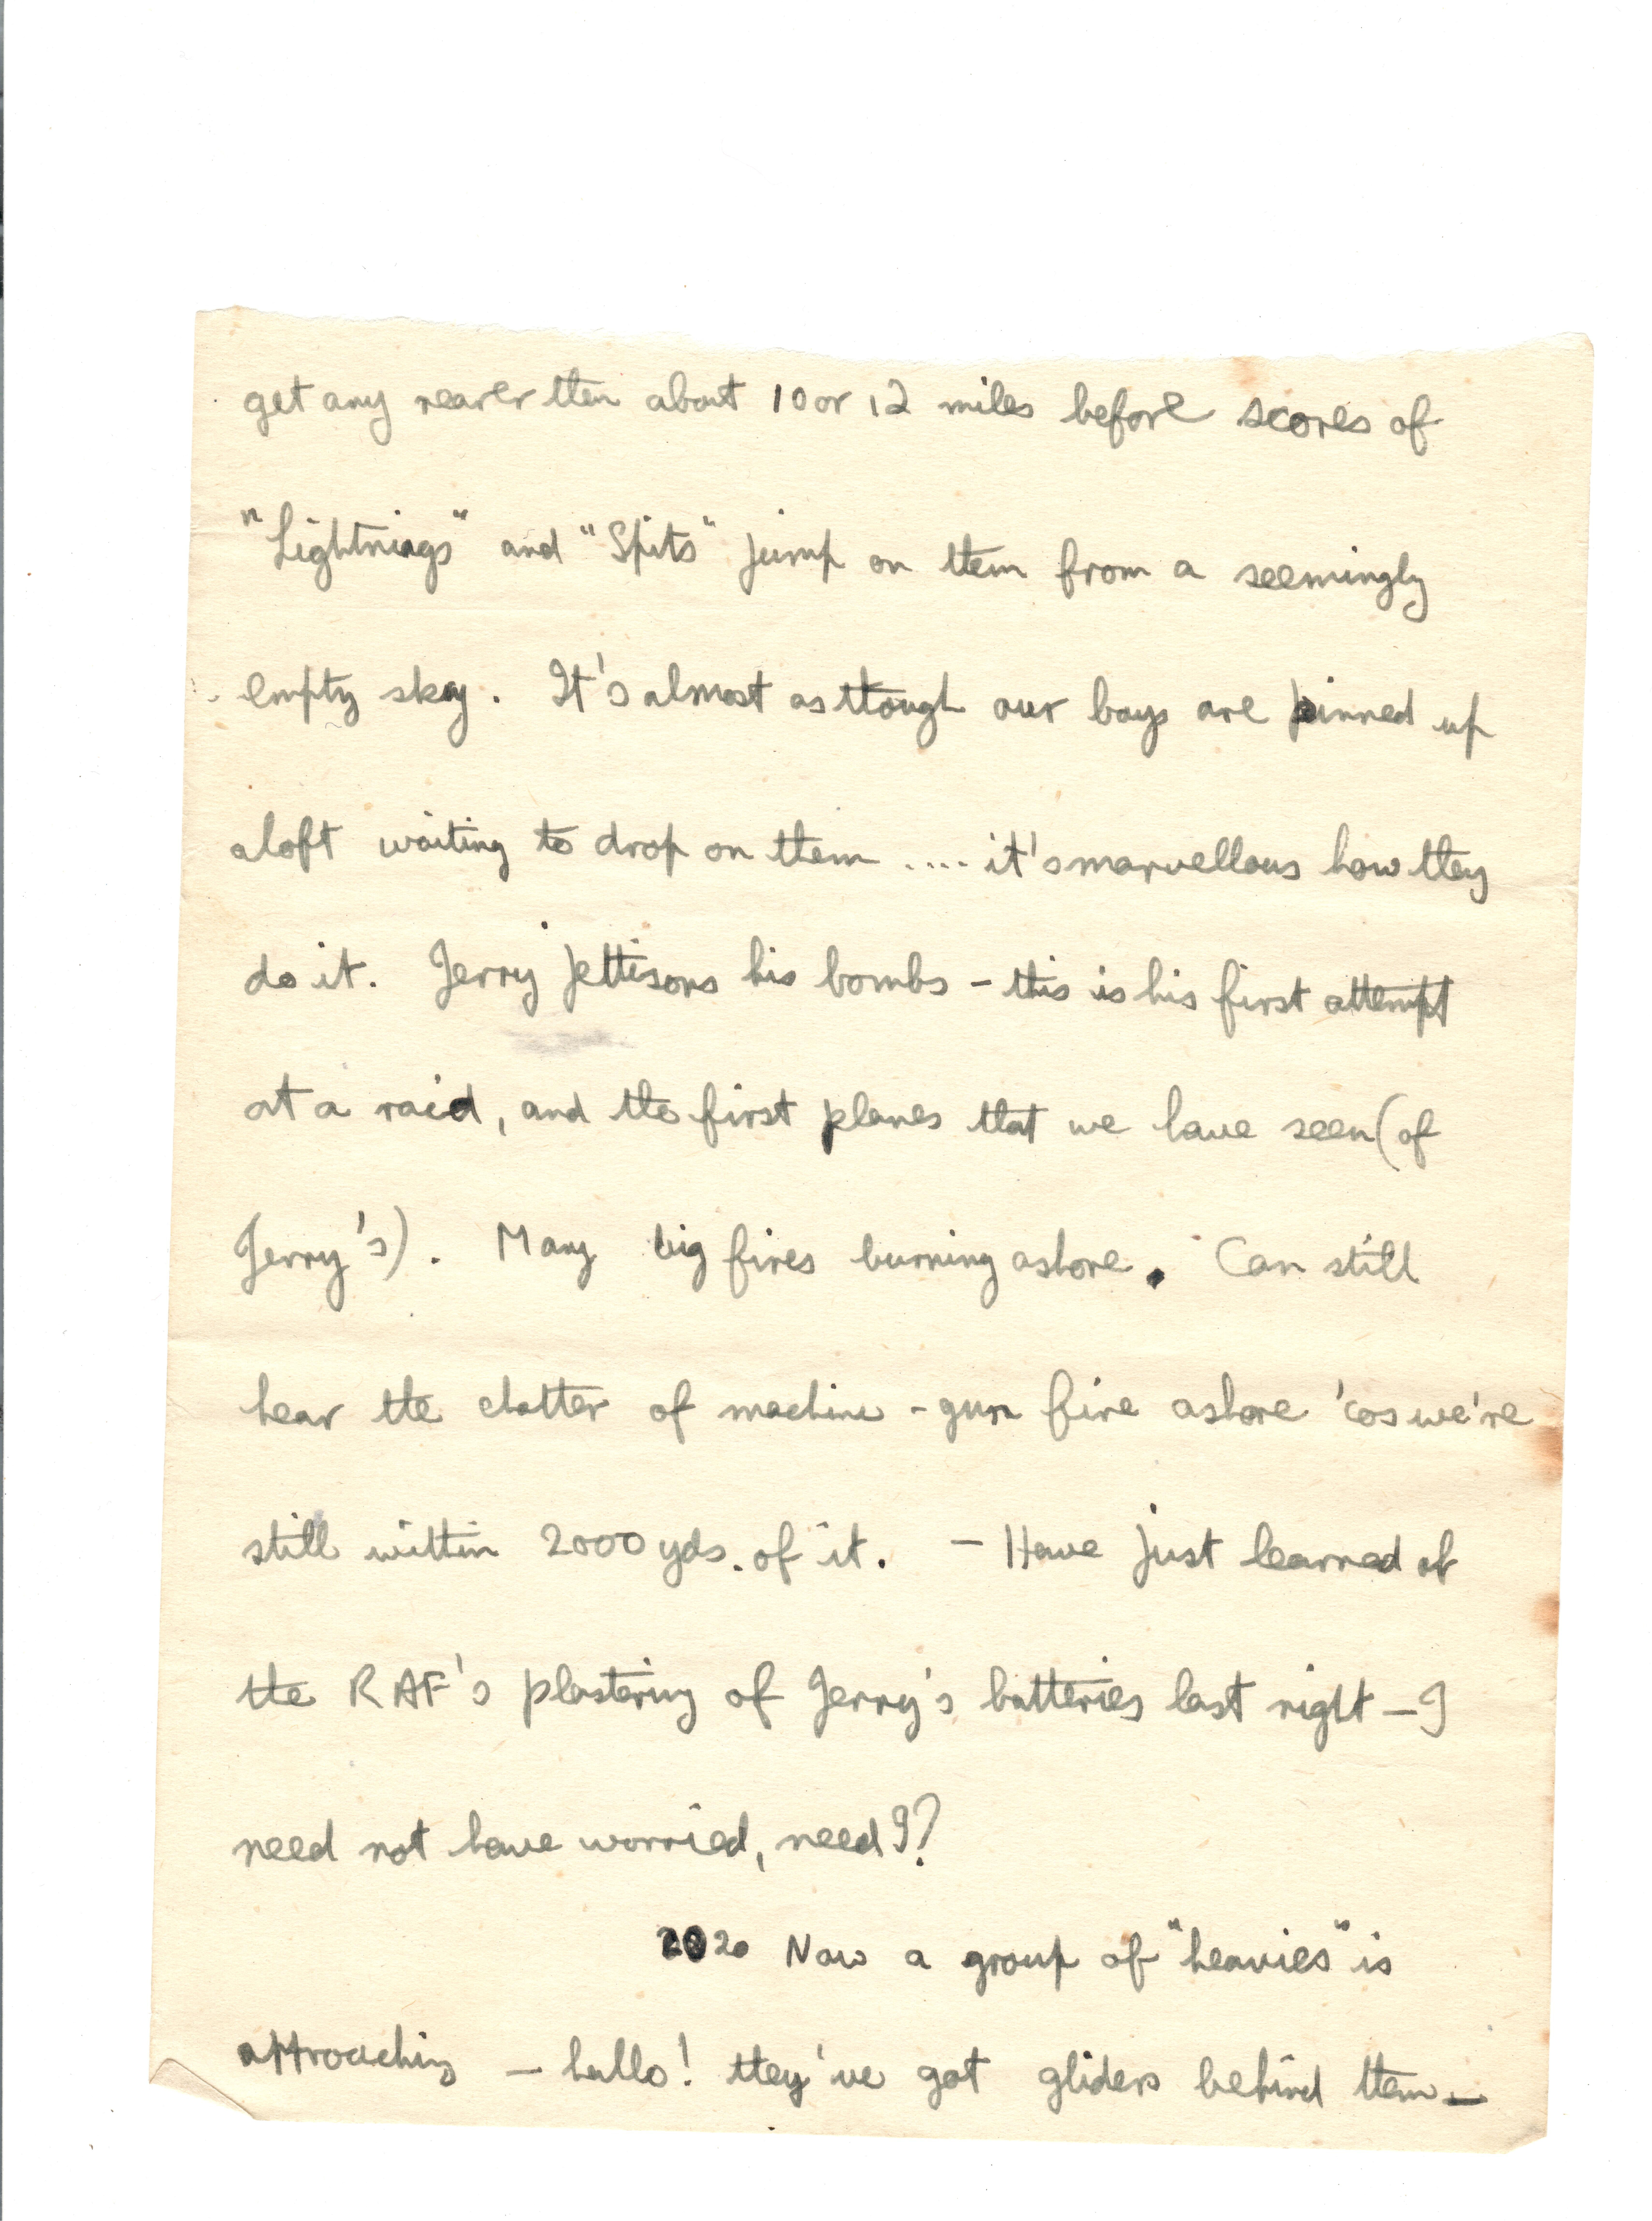 get any nearer then about 10 or 12 miles before scores of
"Lightnings" and "Spits" jump on them from a seemingly
empty sky. It's almost as though our boys are pinned up
aloft waiting to drop on them .... it's marvellous how they
do it. Jerry jettisons his bombs - this is his first attempt
at a raid, and the first planes that we have seen (of
Jerry's). Many big fires burning ashore. Can still
hear the chatter of machine-gun fire ashore 'cos we're
still within 2000 yds. of it. - Have just learned of
the RAF's plastering of Jerry's batteries last night - I
need not have worried, need I?
2020 Now a group of "heavies" is
approaching - hallo! they've got gliders behind them -